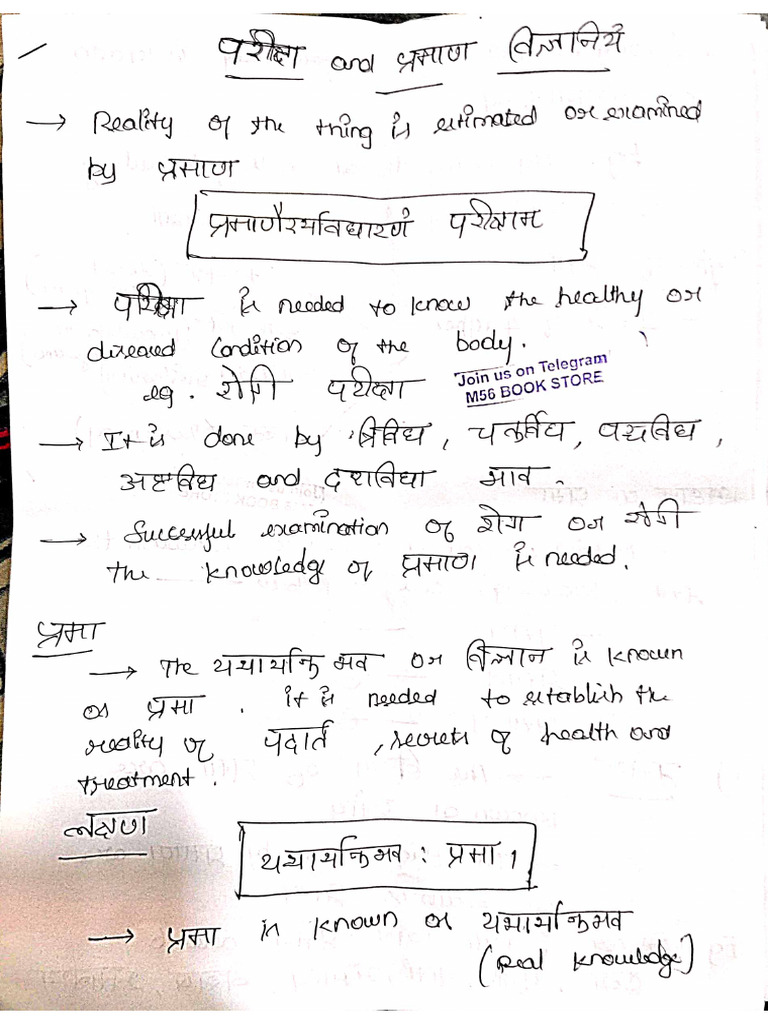 परीक्षा and प्रमाण विज्ञानियं
→ Reality of the thing is estimated or examined
by प्रमाण
प्रमाणैरर्थावधारणं परीक्षाम
→ परीक्षा is needed to know the healthy or
diseased condition of the body.
eg. रोगी परीक्षा
Join us on Telegram
M56 BOOK STORE
→ It is done by त्रिविध, चतुर्विध, पञ्चविध,
अष्टविध and दशविधा भाव.
→ Successful examination of रोग or रोगी
the knowledge of प्रमाण is needed.
प्रमा
→ The यथार्थानुभव or विज्ञान is known
as प्रमा. it is needed to establish the
reality of पदार्त, secrets of health and
treatment.
लक्षण
यथार्थानुभव: प्रमा।
→ प्रमा is known as यथार्थानुभव
(Real knowledge)